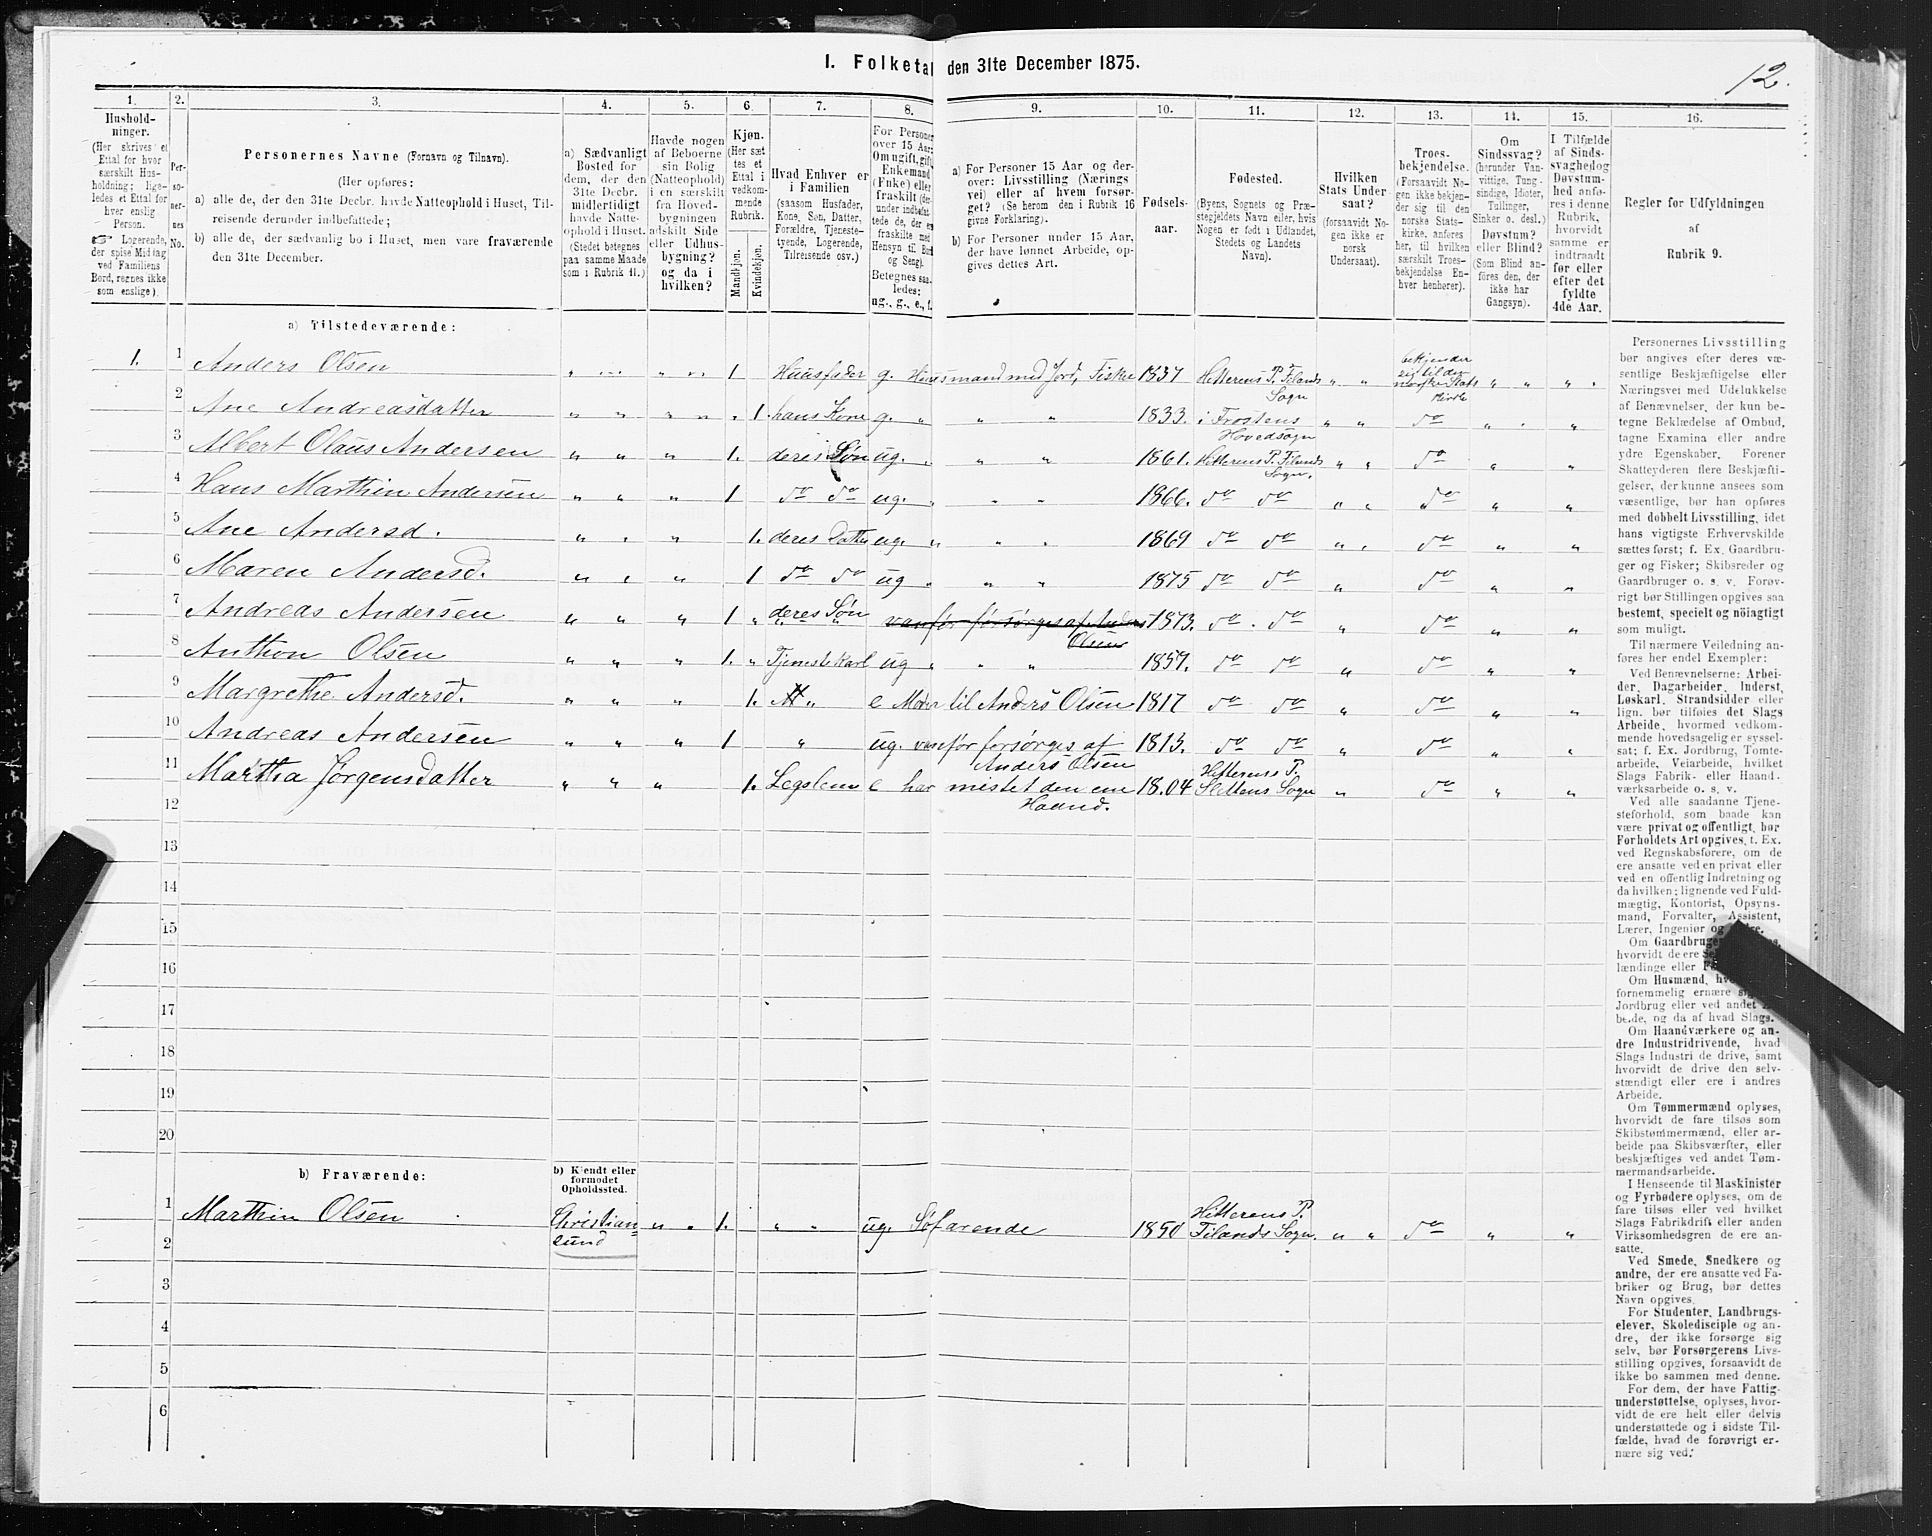 I. Folketal den 31te December 1875.
12.
1. 2. 3. 4. 5. 6. 7. 8. 9. 10. 11. 12. 13. 14. 15. 16.
Husholdninger.
(Her skrives et Ettal for hver særskilt Husholdning; ligeledes et Ettal for hver enslig Person.
☞ Logerende, der spise Middag ved Familiens Bord, regnes ikke som enslige).
Personernes No.
Personernes Navne (Fornavn og Tilnavn).
(Her opføres:
a) alle de, der den 31te Decbr. havde Natteophold i Huset, Tilreisende derunder indbefattede;
b) alle de, der sædvanlig bo i Huset, men vare fraværende den 31te December.
a) Sædvanligt Bosted for dem, der den 31te Decbr. midlertidigt havde Natteophold i Huset.
(Stedet betegnes paa samme Maade som i Rubrik 11.)
Havde nogen af Beboerne sin Bolig (Natteophold) i en særskilt fra Hovedbygningen adskilt Side eller Udhusbygning? og da i hvilken?
Kjøn.
(Her sættes et Ettal i vedkommende Rubrik.
Mandkjøn. Kvindekjøn.
Hvad Enhver er i Familien
(saasom Husfader, Kone, Søn, Datter, Forældre, Tjenestetyende, Logerende, Tilreisende osv.)
For Personer over 15 Aar: Om ugift, gift, Enkemand (Enke) eller fraskilt
Betegnes saaledes: ug., g., e., f.
a) For Personer 15 Aar og derover: Livsstilling (Næringsvei) eller af hvem forsørget? (Se herom den i Rubrik 16 givne Forklaring).
b) For Personer under 15 Aar, der have lønnet Arbeide, opgives dettes Art.
Fødselsaar.
Fødested.
(Byens, Sognets og Præstegjeldets Navn eller, hvis Nogen er født i Udlandet, Stedets og Landets Navn).
Hvilken Stats Undersaat?
(forsaavidt Nogen ikke er norsk Undersaat).
Troesbekjendelse.
(Forsaavidt Nogen ikke bekjender sig til den norske Statskirke, anføres her, til hvilken særskilt Troesbekjendelse Enhver henhører).
Om Sindssvag?
(herunder Vanvittige, Tungsindige, Idioter, Tullinger, Sinker o. desl.)
Døvstum? eller Blind?
(Som Blind anføres den, der ikke har Gangsyn).
I Tilfælde af Sindssvaghed og Døvstumhed anføres i denne Rubrik, hvorvidt samme er indtraadt før eller efter det fyldte 4de Aar.
Regler for Udfyldningen
af
Rubrik 9.
a) Tilstedeværende:
1. 1 Anders Olsen " " " " 1 Huusfader g. Huusmand med Jord, Fisker 1837 Hitterens P. Filands Sogn " " bekjender sig til den norske Stats Kirke " " " "
2 Ane Andreasdatter " " " " 1. hans Kone g. " " " 1833. i Frostens Hovedsogn " " do " "
3 Albert Olaus Andersen " " " 1. deres Søn ug. " " " 1861. Hitterens P. Filands Sogn. " " do " "
4 Hans Marthin Andersen " " " 1 do do ug. " " " 1866. do do " " do " "
5 Ane Andersd. " " " 1. deres Datter ug. " " " 1869 do do " " do " "
6 Maren Andersd. " " " 1 do do ug " " " 1875 do do " " do " "
7 Andreas Andersen " " " 1 " deres Søn vanfør forsørges af Anders Olsen 1873. do do " do " "
8 Anthon Olsen " " " 1. " Tjenestekarl ug " " " 1857. do do " do " "
9 Margrethe Andersd. " " " 1. " e Moer til Anders Olsen 1817 do do " do " "
10 Andreas Andersen " " " 1 " ug. vanfør forsørges af Anders Olsen 1813. do do " do " "
11 Martha Jørgensdatter " " " 1. Legslem e har mistet den ene Haand. 1804 Hitterens P. Slettens Sogn " do " "
12
13
14
15
16
17
18
19
20
b) Fraværende:
b) Kjendt eller formodet Opholdssted.
1 Marthin Olsen Christiansund " " 1. " " ug. Søfarende 1850 Hitterens P. Filands Sogn. " " do " "
2
3
4
5
6
Personernes Livsstilling
bør angives efter deres væ-
sentlige Beskjæftigelse eller
Næringsvei med Udelukkelse
af Benævnelser, der kun be-
tegne Beklædelse af Ombud,
tagne Examina eller andre
ydre Egenskaber. Forener
Skatteyderen flere Beskjæfti-
gelser, der kunne ansees som
væsentlige, bør han opføres
med dobbelt Livsstilling, idet
hans vigtigste Erhvervskilde
sættes først; f. Ex. Gaardbru-
ger og Fisker; Skibsreder og
Gaardbruger o. s. v. Forøv-
rigt bør Stillingen opgives saa
bestemt, specielt og nöiagtigt
som muligt.
Til nærmere Veiledning an-
føres her endel Exempler:
Ved Benævnelserne: Arbei-
der, Dagarbeider, Inderst,
Løskarl, Strandsidder eller
lign. bør tilføies det Slags
Arbeide, hvormed vedkom-
mende hovedsagelig er syssel-
sat; f. Ex. Jordbrug, Tomte-
arbeide, Veiarbeide, hvilket
Slags Fabrik- eller Haand-
værksarbeide o. s. v.
Ved alle saadanne Tjene-
steforhold, som baade kan
være privat og offentligt, bør
Forholdets Art opgives, t. Ex.
ved Regnskabsførere, om de
ere ansatte ved en privat eller
ved en offentlig Indretning og
da hvilken; lignende ved Fuld-
mægtig, Kontorist, Opsyns-
mand, Forvalter, Assistent,
Lærer, Ingeniør og
Om Gaardbruger
hvorvidt de ere
lændinge eller
Om Husmænd,
fornemmelig ernære
Jordbrug eller ved andet
beide, og da af hvad Slags.
Om Haandværkere og an-
dre Industridrivende, hvad
Slags Industri de drive, samt
hvorvidt de drive den selv-
stændigt eller ere i andres
Arbeide.
Om Tømmermænd oplyses,
hvorvidt de fare tilsøs som
Skibstømmermænd, eller ar-
beide paa Skibsværfter, eller
beskjæftiges ved andet Tøm-
mermandsarbeide.
I Henseende til Maskinister
og Fyrbødere oplyses, om de
fare tilsøs eller ved hvilket
Slags Fabrikdrift eller anden
Virksomhedsgren de ere an-
satte.
Ved Smede, Snedkere og
andre, der ere ansatte ved Fa-
briker og Brug, bør dettes
Navn opgives.
For Studenter, Landbrugs-
elever, Skoledisciple og an-
dre, der ikke forsørge sig
selv, bør Forsørgerens Livs-
stilling opgives, forsaavidt de
ikke bo sammen med denne.
For dem, der have Fattig-
understøttelse, oplyses, hvor-
vidt de ere helt eller delvis
understøttede og i sidste Til-
fælde, hvad de forøvrigt er-
nære sig ved.